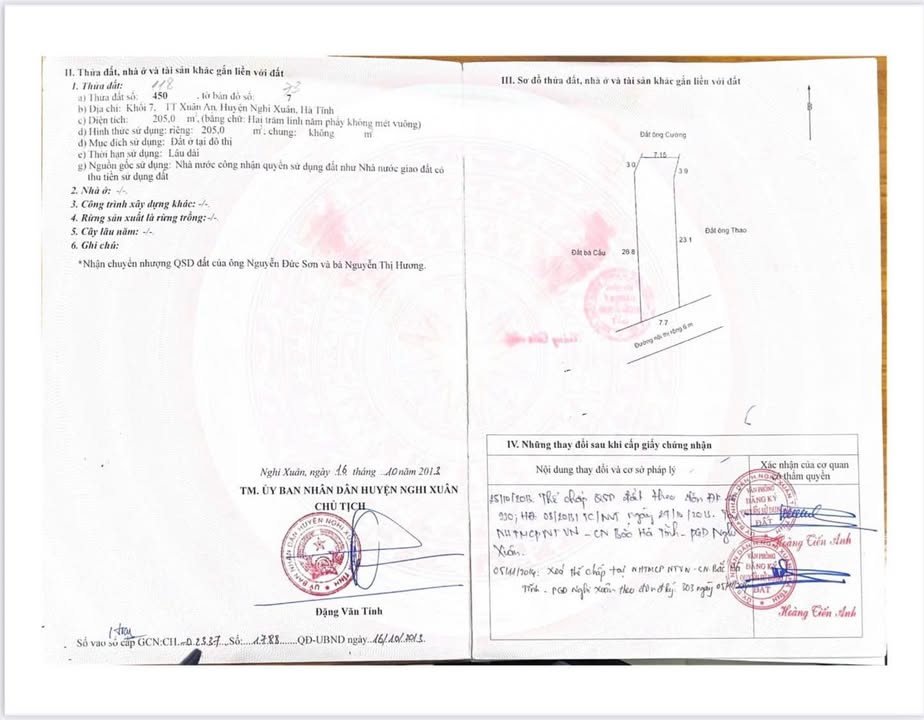 II. Thửa đất, nhà ở và tài sản khác gắn liền với đất
1. Thửa đất: 118 73
a) Thửa đất số: 450 , tờ bản đồ số: 7
b) Địa chỉ: Khối 7, TT Xuân An, Huyện Nghi Xuân, Hà Tĩnh
c) Diện tích: 205,0 m², (bằng chữ: Hai trăm linh năm phẩy không mét vuông)
d) Hình thức sử dụng: riêng: 205,0 m², chung: không m²
đ) Mục đích sử dụng: Đất ở tại đô thị
e) Thời hạn sử dụng: Lâu dài
g) Nguồn gốc sử dụng: Nhà nước công nhận quyền sử dụng đất như Nhà nước giao đất có
thu tiền sử dụng đất
2. Nhà ở: -/-.
3. Công trình xây dựng khác: -/-.
4. Rừng sản xuất là rừng trồng:-/-.
5. Cây lâu năm: -/-.
6. Ghi chú:
*Nhận chuyển nhượng QSD đất của ông Nguyễn Đức Sơn và bà Nguyễn Thị Hương.
Nghi Xuân, ngày 16 tháng 10 năm 2013
TM. ỦY BAN NHÂN DÂN HUYỆN NGHI XUÂN
CHỦ TỊCH
Đặng Văn Tính
Số vào sổ cấp GCN:CH 02337 Số: 1788 QĐ-UBND ngày 16/10/2013
III. Sơ đồ thửa đất, nhà ở và tài sản khác gắn liền với đất
B
Đất ông Cường
7.15
3.0
3.9
Đất ông Thao
23.1
Đất bà Cầu
26.8
7.7
Đường nội thị rộng 6 m
IV. Những thay đổi sau khi cấp giấy chứng nhận
Nội dung thay đổi và cơ sở pháp lý
Xác nhận của cơ quan
có thẩm quyền
Thế chấp QSD đất theo đơn ĐK
NHTMCPNT VN - CN Bắc Hà Tĩnh - PGD Nghi
Xuân.
Hoàng Tiến Anh
05/11/2014: Xoá thế chấp tại NHTMCP NTVN - CN Bắc Hà
Tĩnh - PGD Nghi Xuân theo đơn đăng ký 303 ngày
Hoàng Tiến Anh
VĂN PHÒNG
ĐĂNG KÝ
ĐẤT